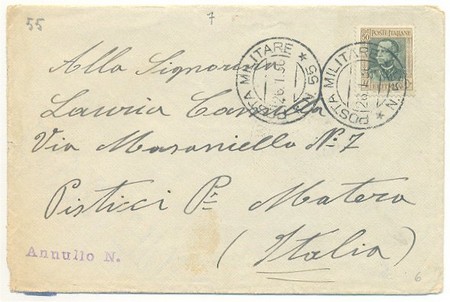 55
7
POSTE ITALIANE
POSTA MILITARE N. 55
POSTA MILITARE N. 55
Alla Signorina
Lauria Carmela
Via Masaniello Nº 7
Pisticci Pr Matera
(Italia)
Annullo N.
6